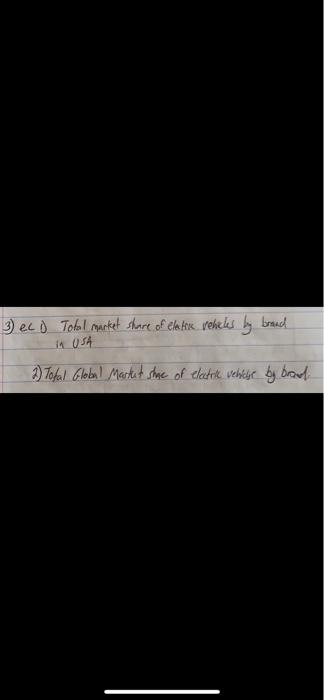 3) ec 1) Total market share of electric vehicles by brand
in USA
2) Total Global Market share of electric vehicles by brand.